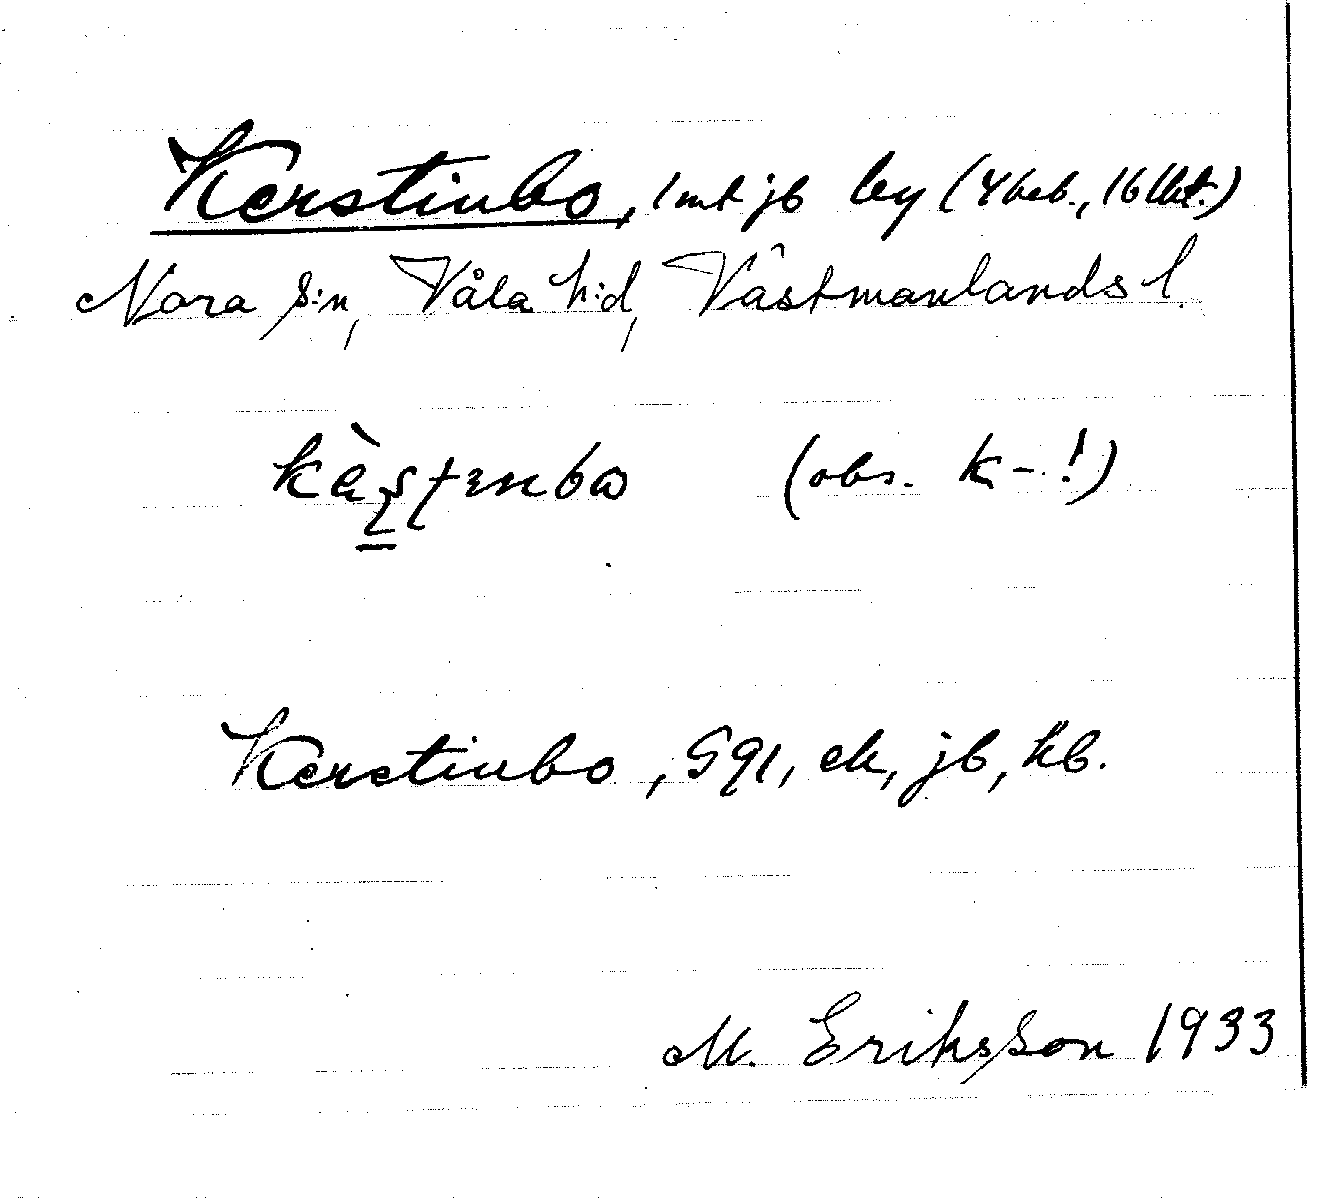 Kerstinbo, 1 mt jb by (4 beb., 16 lht.)
Nora s:n, Våla h:d, Västmanlands l.
(obs. k-!)
Kerstinbo, GQ1, ek, jb, kb.
M. Eriksson 1933